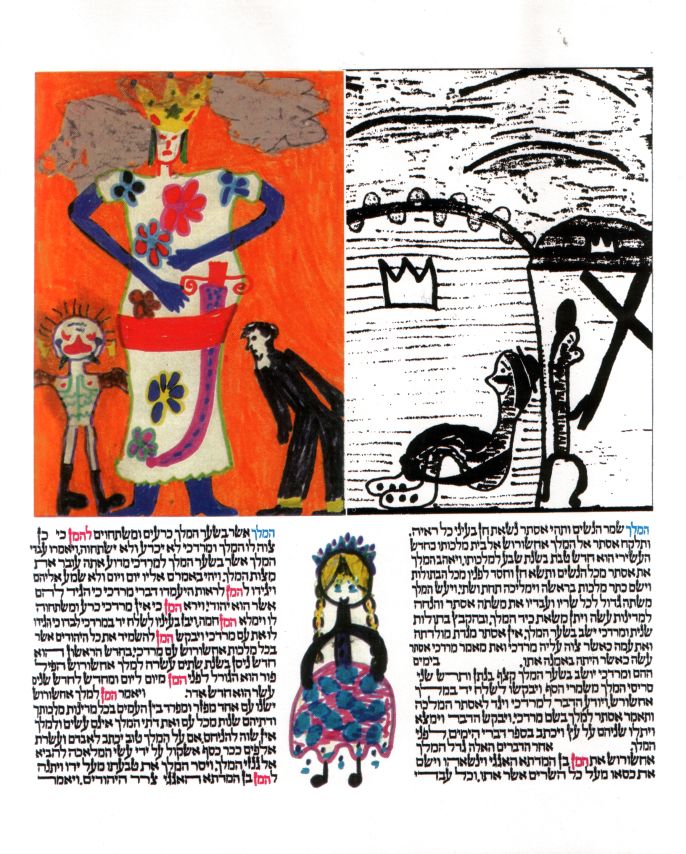 המלך שמר הנשים ותהי אסתר נשאת חן בעיני כל ראיה.
ותלקח אסתר אל המלך אחשורוש אל בית מלכותו בחדש
העשירי הוא חדש טבת בשנת שבע למלכותו. ויאהב המלך
את אסתר מכל הנשים ותשא חן וחסד לפניו מכל הבתולות
וישם כתר מלכות בראשה וימליכה תחת ושתי. ויעש המלך
משתה גדול לכל שריו ועבדיו את משתה אסתר והנחה
למדינות עשה ויתן משאת כיד המלך. ובהקבץ בתולות
שנית ומרדכי ישב בשער המלך. אין אסתר מגדת מולדתה
ואת עמה כאשר צוה עליה מרדכי ואת מאמר מרדכי אסתר
עשה כאשר היתה באמנה אתו. בימים
ההם ומרדכי יושב בשער המלך קצף בגתן ותרש שני
סריסי המלך משמרי הסף. ויבקשו לשלח יד במלך
אחשורוש. ויודע הדבר למרדכי ויגד לאסתר המלכה
ותאמר אסתר למלך בשם מרדכי. ויבקש הדבר וימצא
ויתלו שניהם על עץ ויכתב בספר דברי הימים, לפני
המלך. אחר הדברים האלה גדל המלך
אחשורוש את המן בן המדתא האגגי וינשאהו וישם
את כסאו מעל כל השרים אשר אתו. וכל עבדי
המלך אשר בשער המלך, כרעים ומשתחוים להמן כי כן
צוה לו המלך ומרדכי לא יכרע ולא ישתחוה. ויאמרו עבדי
המלך אשר בשער המלך למרדכי מדוע אתה עובר את
מצות המלך. ויהי באמרם אליו יום ויום ולא שמע אליהם
ויגידו להמן לראות היעמדו דברי מרדכי כי הגיד להם
אשר הוא יהודי. וירא המן כי אין מרדכי כרע ומשתחוה
לו וימלא המן חמה. ויבז בעיניו לשלח יד במרדכי לבדו כי הגידו
לו את עם מרדכי ויבקש המן להשמיד את כל היהודים אשר
בכל מלכות אחשורוש עם מרדכי. בחדש הראשון הוא
חדש ניסן בשנת שתים עשרה למלך אחשורוש הפיל
פור הוא הגורל לפני המן מיום ליום ומחדש לחדש שנים
עשר הוא חדש אדר. ויאמר המן למלך אחשורוש
ישנו עם אחד מפזר ומפרד בין העמים בכל מדינות מלכותך
ודתיהם שנות מכל עם ואת דתי המלך אינם עשים ולמלך
אין שוה להניחם. אם על המלך טוב יכתב לאבדם ועשרת
אלפים ככר כסף אשקול על ידי עשי המלאכה להביא
אל גנזי המלך. ויסר המלך את טבעתו מעל ידו ויתנה
להמן בן המדתא האגגי צרר היהודים. ויאמר